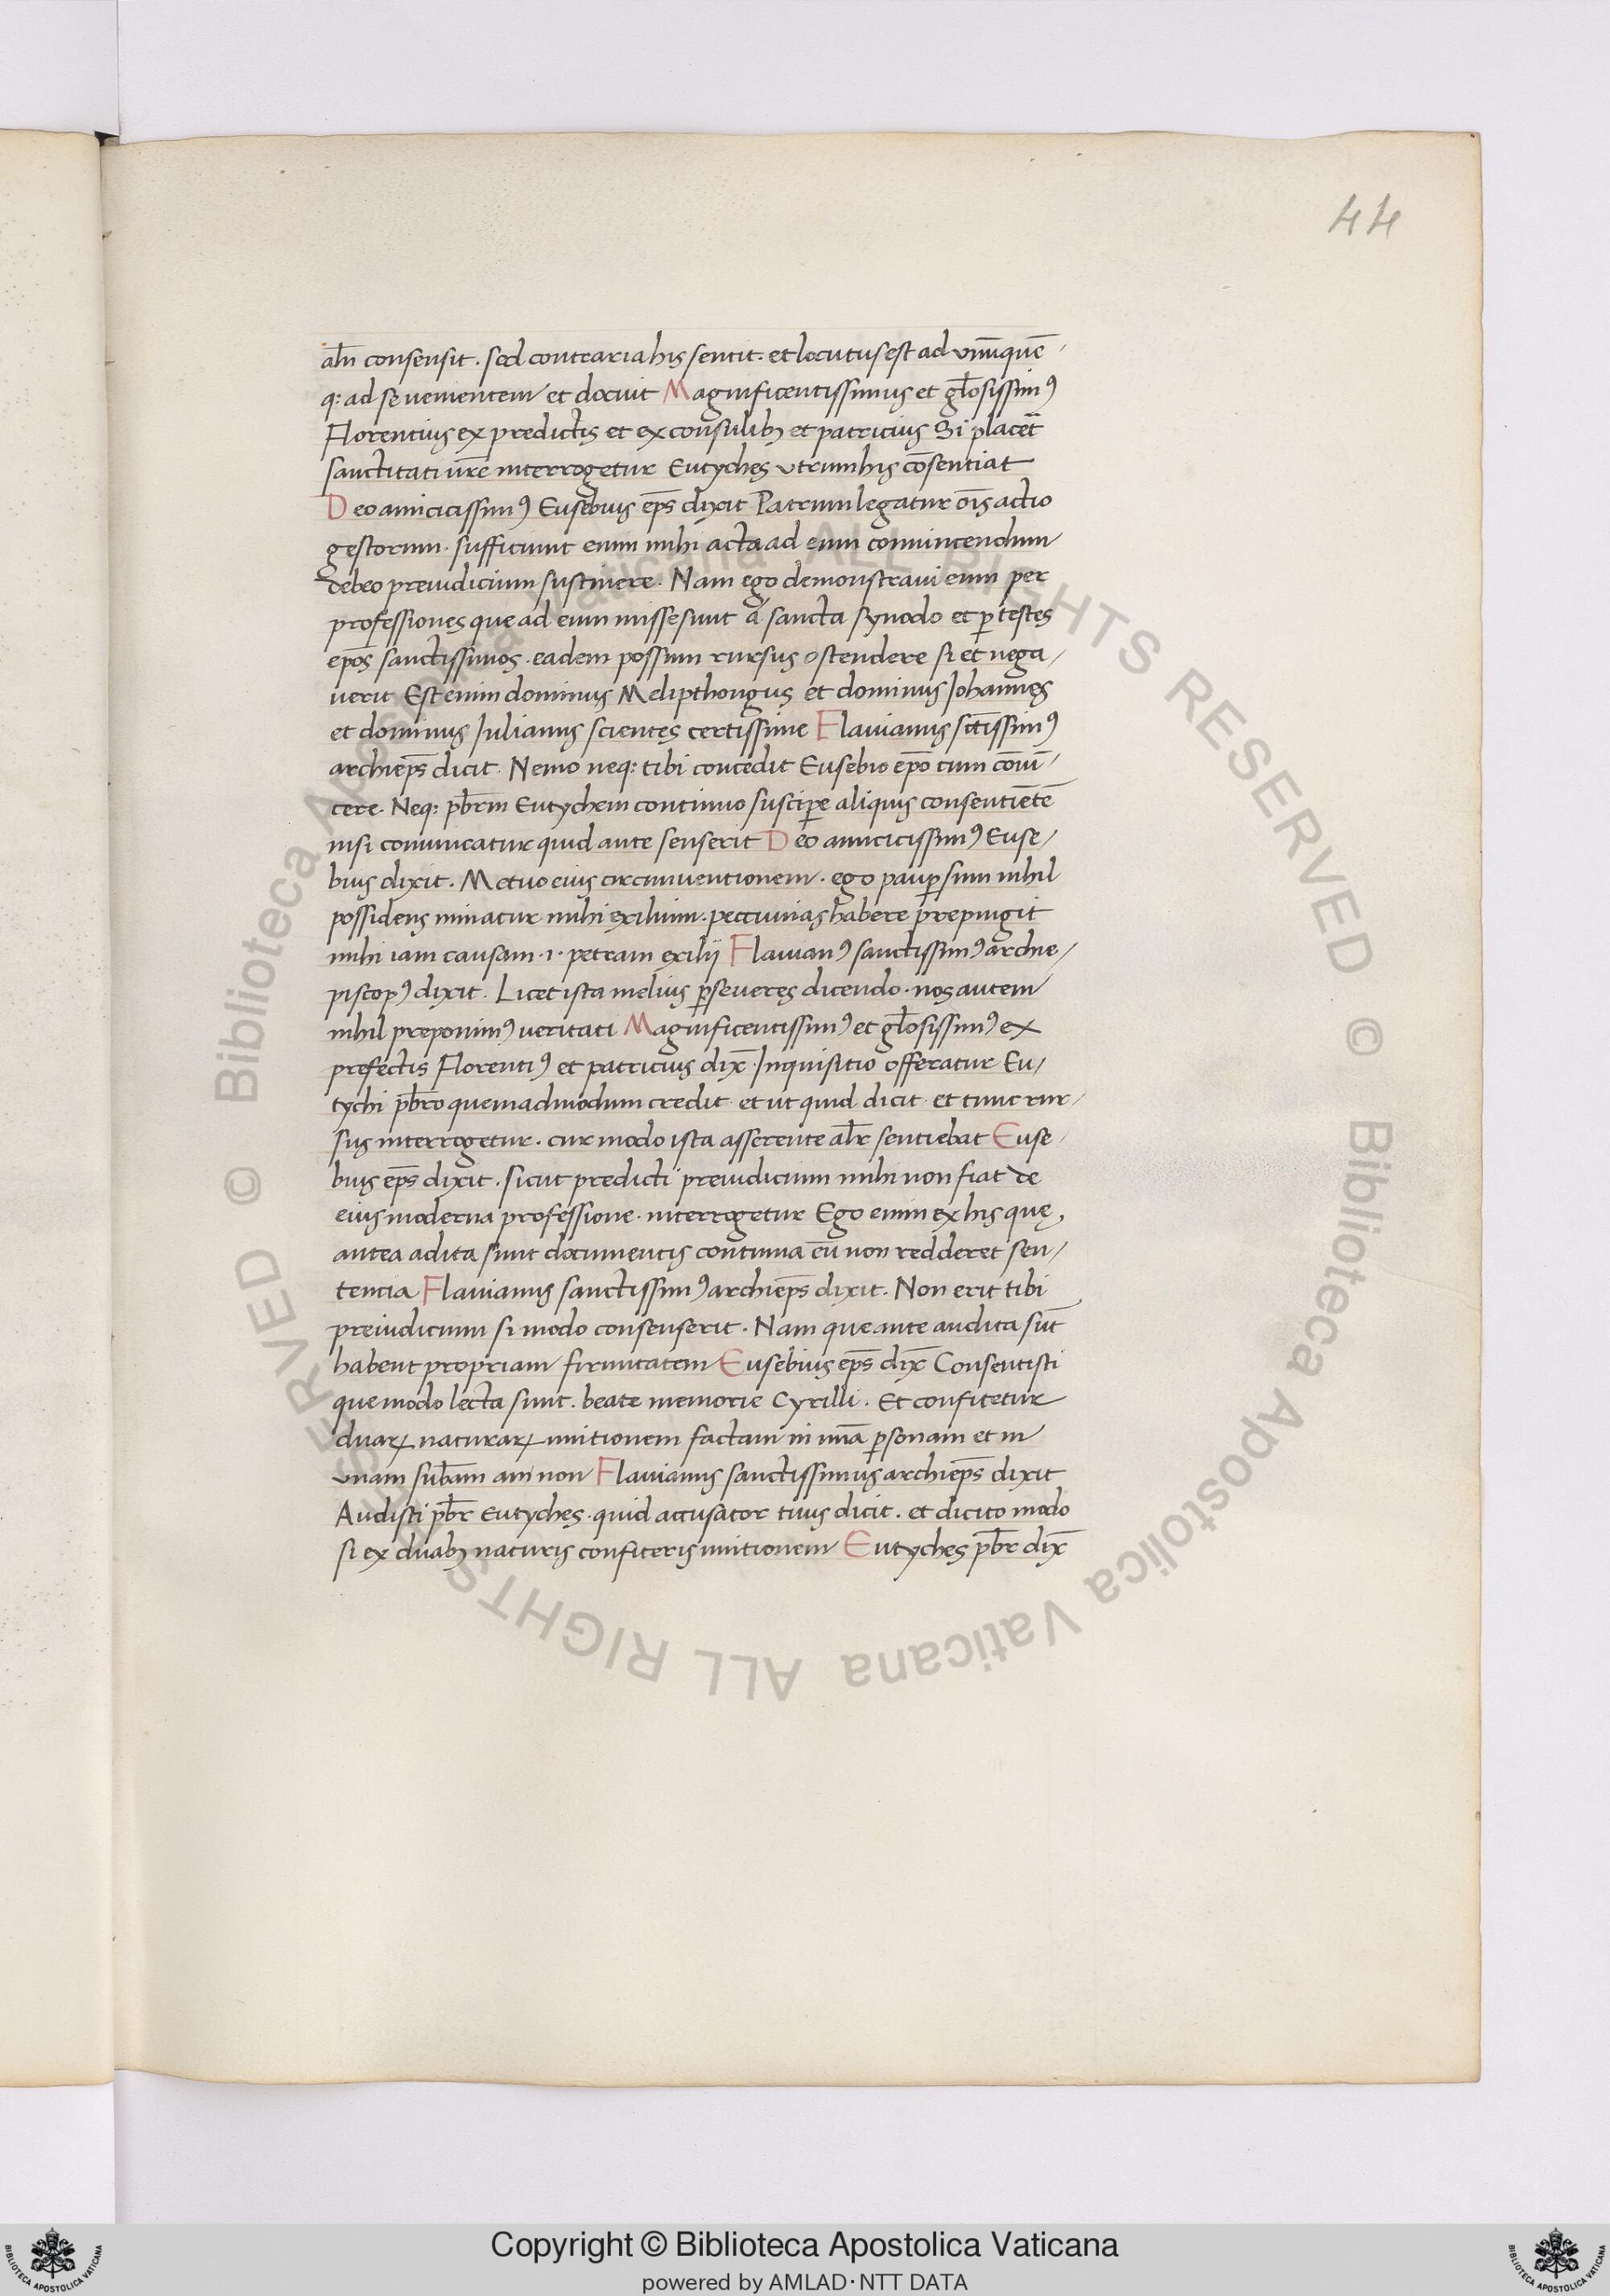 44
alr̄ consensit . sed contraria his sentit . et locutus est ad vnūquē
q: ad se uenientem et docuit Magnificentissimus et glōsissimꝰ
Florentius ex predictis et ex consulibꝫ et patricius Si placet
sanctitati vrē interrogetur Eutyches vtrum his cōsentiat
Deo amicissimꝰ Eusebius ep̄s dixit Patrum legatur oīs actio
gestorum . sufficiunt enim mihi acta ad eum conuincendum
debeo preiudicium sustinere . Nam ego demonstraui eum per
professiones que ad eum misse sunt a sancta synodo et ꝑ testes
ep̄os sanctissimos . eadem possum rursus ostendere si et nega
uerit Est enim dominus Melipthongus et dominus Johannes
et dominus Julianus scientes certissime Flauianus sc̄tissimꝰ
archiep̄s dicit . Nemo neq: tibi concedit Eusebio ep̄o cum cōuī
cere . Neq: pb̄rm Eutychem continuo suscipe aliquis consentiētē
nisi conuincatur quid ante senserit Deo amicicissimꝰ Euse
bius dixit . Metuo eius circumuentionem . ego pauꝑ sum nihil
possidens minatur mihi exilium . peccunias habere prepingit
mihi iam causam . i . petram exilij Flauianꝰ sanctissimꝰ archie
piscopꝰ dixit . Licet ista melius ꝑseueres dicendo . nos autem
nihil preponimꝰ veritati Magnificentissimꝰ et glōsissimꝰ ex
prefectis Florentiꝰ et patricius dix̄ . Inquisitio offeratur Eu
tychi pb̄ro quemadmodum credit . et ut quid dicit . et tunc rur
sus interrogetur . cur modo ista asserente alr̄ sentiebat Euse
bius ep̄s dixit . sicut predicti preiudicium mihi non fiat de
eius moderna professione . interrogetur Ego enim ex his que
antea adita sunt documentis continua eū non redderet sen
tencia Flauianus sanctissimꝰ archiep̄s dixit . Non erit tibi
preiudicium si modo consenserit . Nam que ante audita sūt
habent propriam firmitatem Eusebius ep̄s dix̄ Consentisti
que modo lecta sunt . beate memorie Cyrilli . Et confitetur
duaꝝ naturaꝝ unitionem factam in unā ꝑsonam et in
vnam sub̄am an non Flauianus sanctissimus archiep̄s dixit
Audisti pb̄r Eutyches . quid accusator tuus dicit . et dicito modo
si ex duabꝫ naturis confiteris unitionem Eutyches pb̄r dix̄
© Biblioteca Apostolica Vaticana ALL RIGHTS RESERVED © Biblioteca Apostolica Vaticana ALL RIGHTS RESERVED
Copyright © Biblioteca Apostolica Vaticana
powered by AMLAD·NTT DATA
BIBLIOTECA APOSTOLICA VATICANA
BIBLIOTECA APOSTOLICA VATICANA